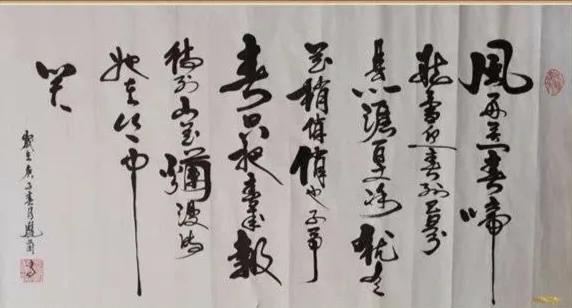 風雨送春歸
飛雪迎春到已是
懸崖百丈冰犹有
花枝俏俏也不爭
春只把春來報
待到山花爛漫時
她在丛中
笑
歲在庚子春月